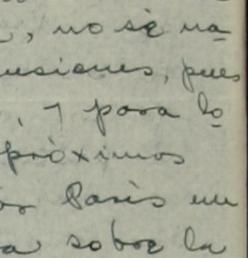 , no sé na
usiones, pues
, y para lo
próximos
París un
sobre la